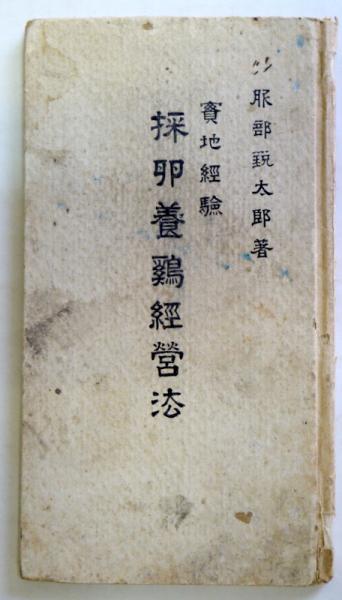 服部鋭太郎著
實地經驗
採卵養鷄經營法